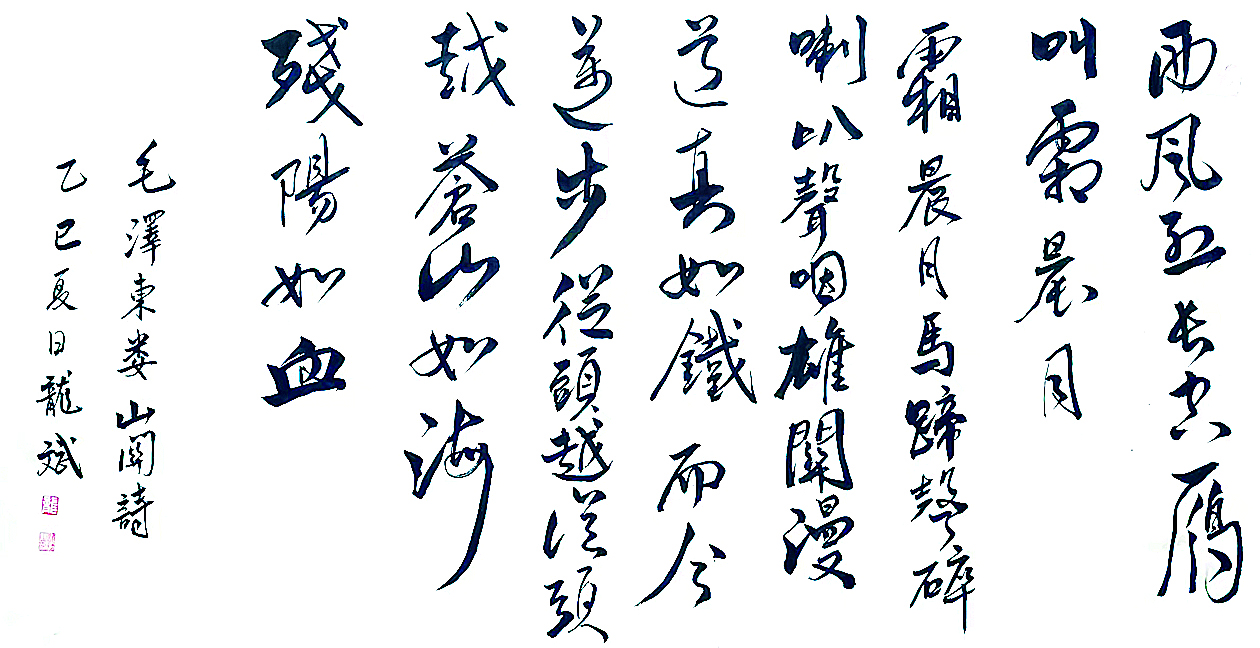 西風烈長空鴈
叫霜晨月
霜晨月馬蹄聲碎
喇叭聲咽雄關漫
道真如鐵而今
邁步從頭越從頭
越蒼山如海
殘陽如血
毛澤東婁山関詩
乙巳夏日龍斌